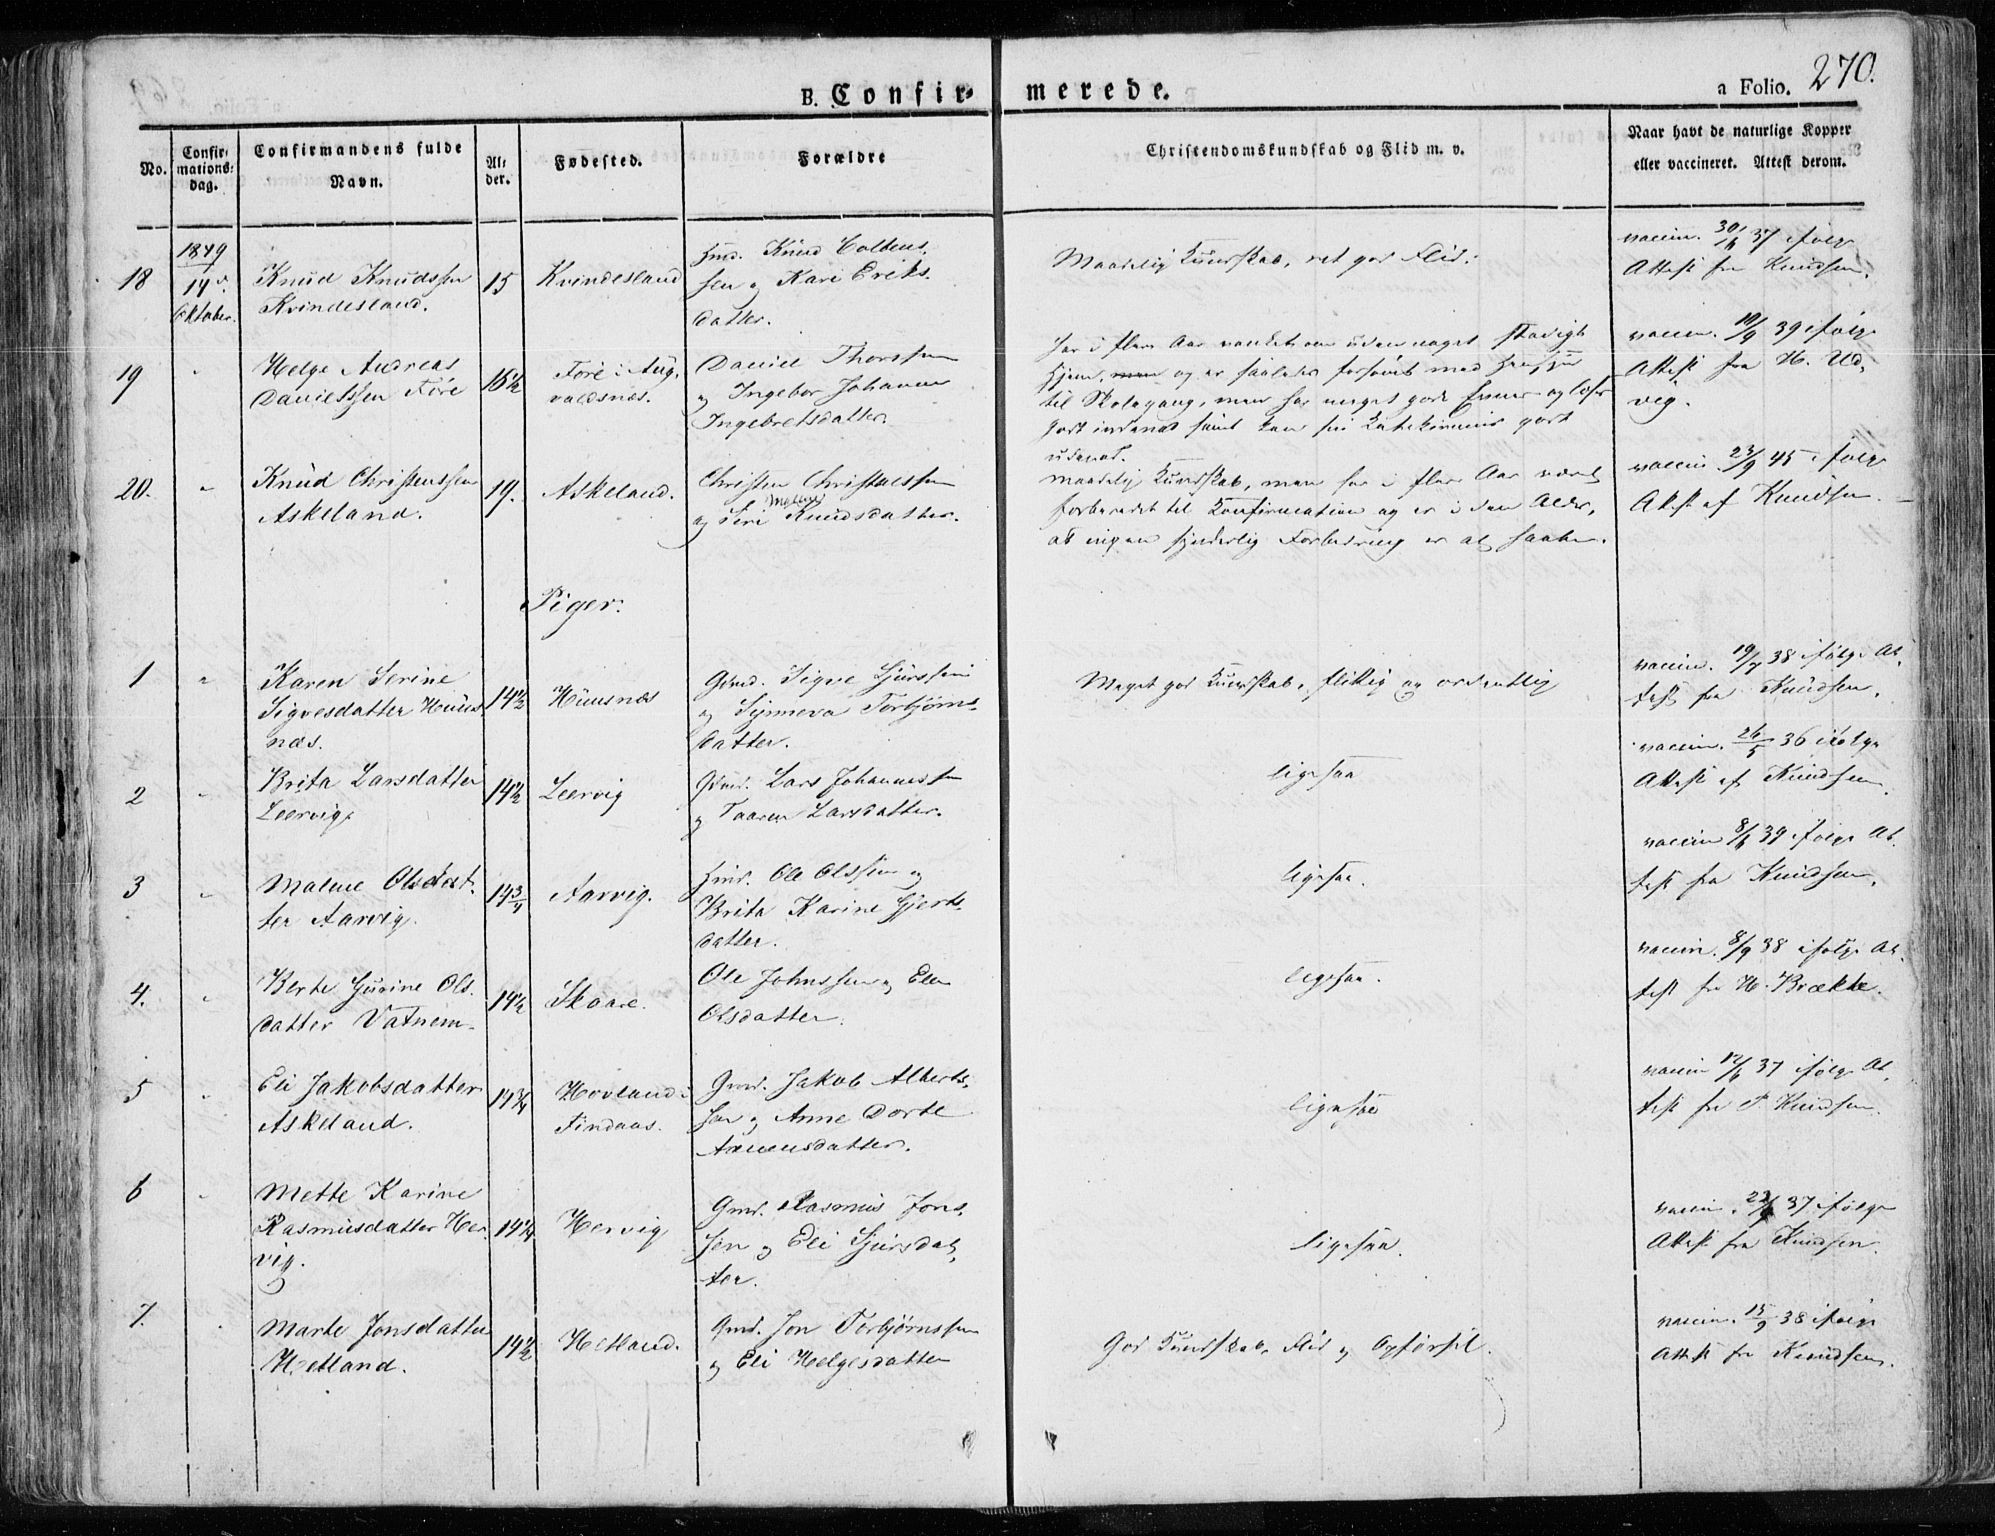 B. Confir= merede. a Folio. 270.
No. Confir= mations= dag. Confirmandens fulde Navn. Al= der. Fødested. Forældre Christendomskundskab og Flid m. v. Naar havt de naturlige Kopper eller vaccineret. Attest derom.
1849
14de
Oktober.
18 Knud Knudssen 15 Kvindesland Knud
Kvindesland.
sen og Kari Eriks
datter.
Maadelig Kundskab, ret god Flid.
vaccin. 37 ifølge
Attest fra Knudsen.
19 " Helge Andreas 16½ Føre i Aug.
Danielssen Føre valdsnæs.
Daniel Thorssen
og Ingebor Johanne
Ingebretsdatter.
har i flere Aar vanket om uden noget stadigt
Hjem, men og er saaledes forsømt med Hensyn
til Skolegang, men har meget gode Evner og læser
godt indenad samt kan sin Katekismus godt
udenad.
vaccin. 39 ifølge
Attest fra H. Ud,
vig.
20. " Knud Christenssen 19. Askeland.
Askeland.
Christen Christenssen
og Siri Knudsdatter.
maadelig Kundskab, men har i flere Aar været
forberedet til Konfirmation og er i den Alder,
at ingen synderlig Forbedring er at haabe.
vaccin. 23/9 45 ifølge
Attest af Knudsen.
Piger.
1 " Karen Serine 14½ Huusnæs
Sigvesdatter Huus
næs.
Gmd. Sigve Sjurssen
og Synneva Torbjørns=
datter.
Meget god Kundskab, flittig og ordentlig
vaccin. 38 ifølge At,
test fra Knudsen.
2 " Brita Larsdatter 14½ Leervig
Leervig.
Gmd. Lars Johannessen
og Taaren Larsdatter.
ligesaa
vaccin. 26/5 36 ifølge
Attest af Knudsen.
3 " Malene Olsdat. 14¾ Aarvig.
ter Aarvig.
Ole Olssen og
Brita Karine Gjerts
datter.
ligesaa.
vaccin 39 ifølge At.
test fra Knudsen.
4. " Berte Gurine Ols. 14½ Skaare.
datter Vatnem.
Ole Johnssen og Elen
Olsdatter.
ligesaa.
vaccin. 8/9 38 ifølge At.
test fra H. Brække.
5 " Eli Jakobsdatter 14¾ Hovland i
Askeland. Findaas.
Gmd. Jakob Alberts,
sen og Anne Dorte
datter.
ligesaa
vaccin 37 ifølge At,
test fra P. Knudsen.
6 " Mette Karine
Rasmusdatter Her 14¼ Hervig
vig.
Gmd. Rasmus Jons,
sen og Eli Sjursdat,
ter.
ligesaa.
vaccin. 37 ifølge
Attest fra Knudsen.
7. " Marte Jonsdatter 14½ Hetland.
Hetland.
Gmd. Jon Torbjørnssen
og Eli Helgesdatter
God Kundskab, Flid og Opførsel.
vaccin. 15/9 38 ifølge
Attest fra Knudsen.